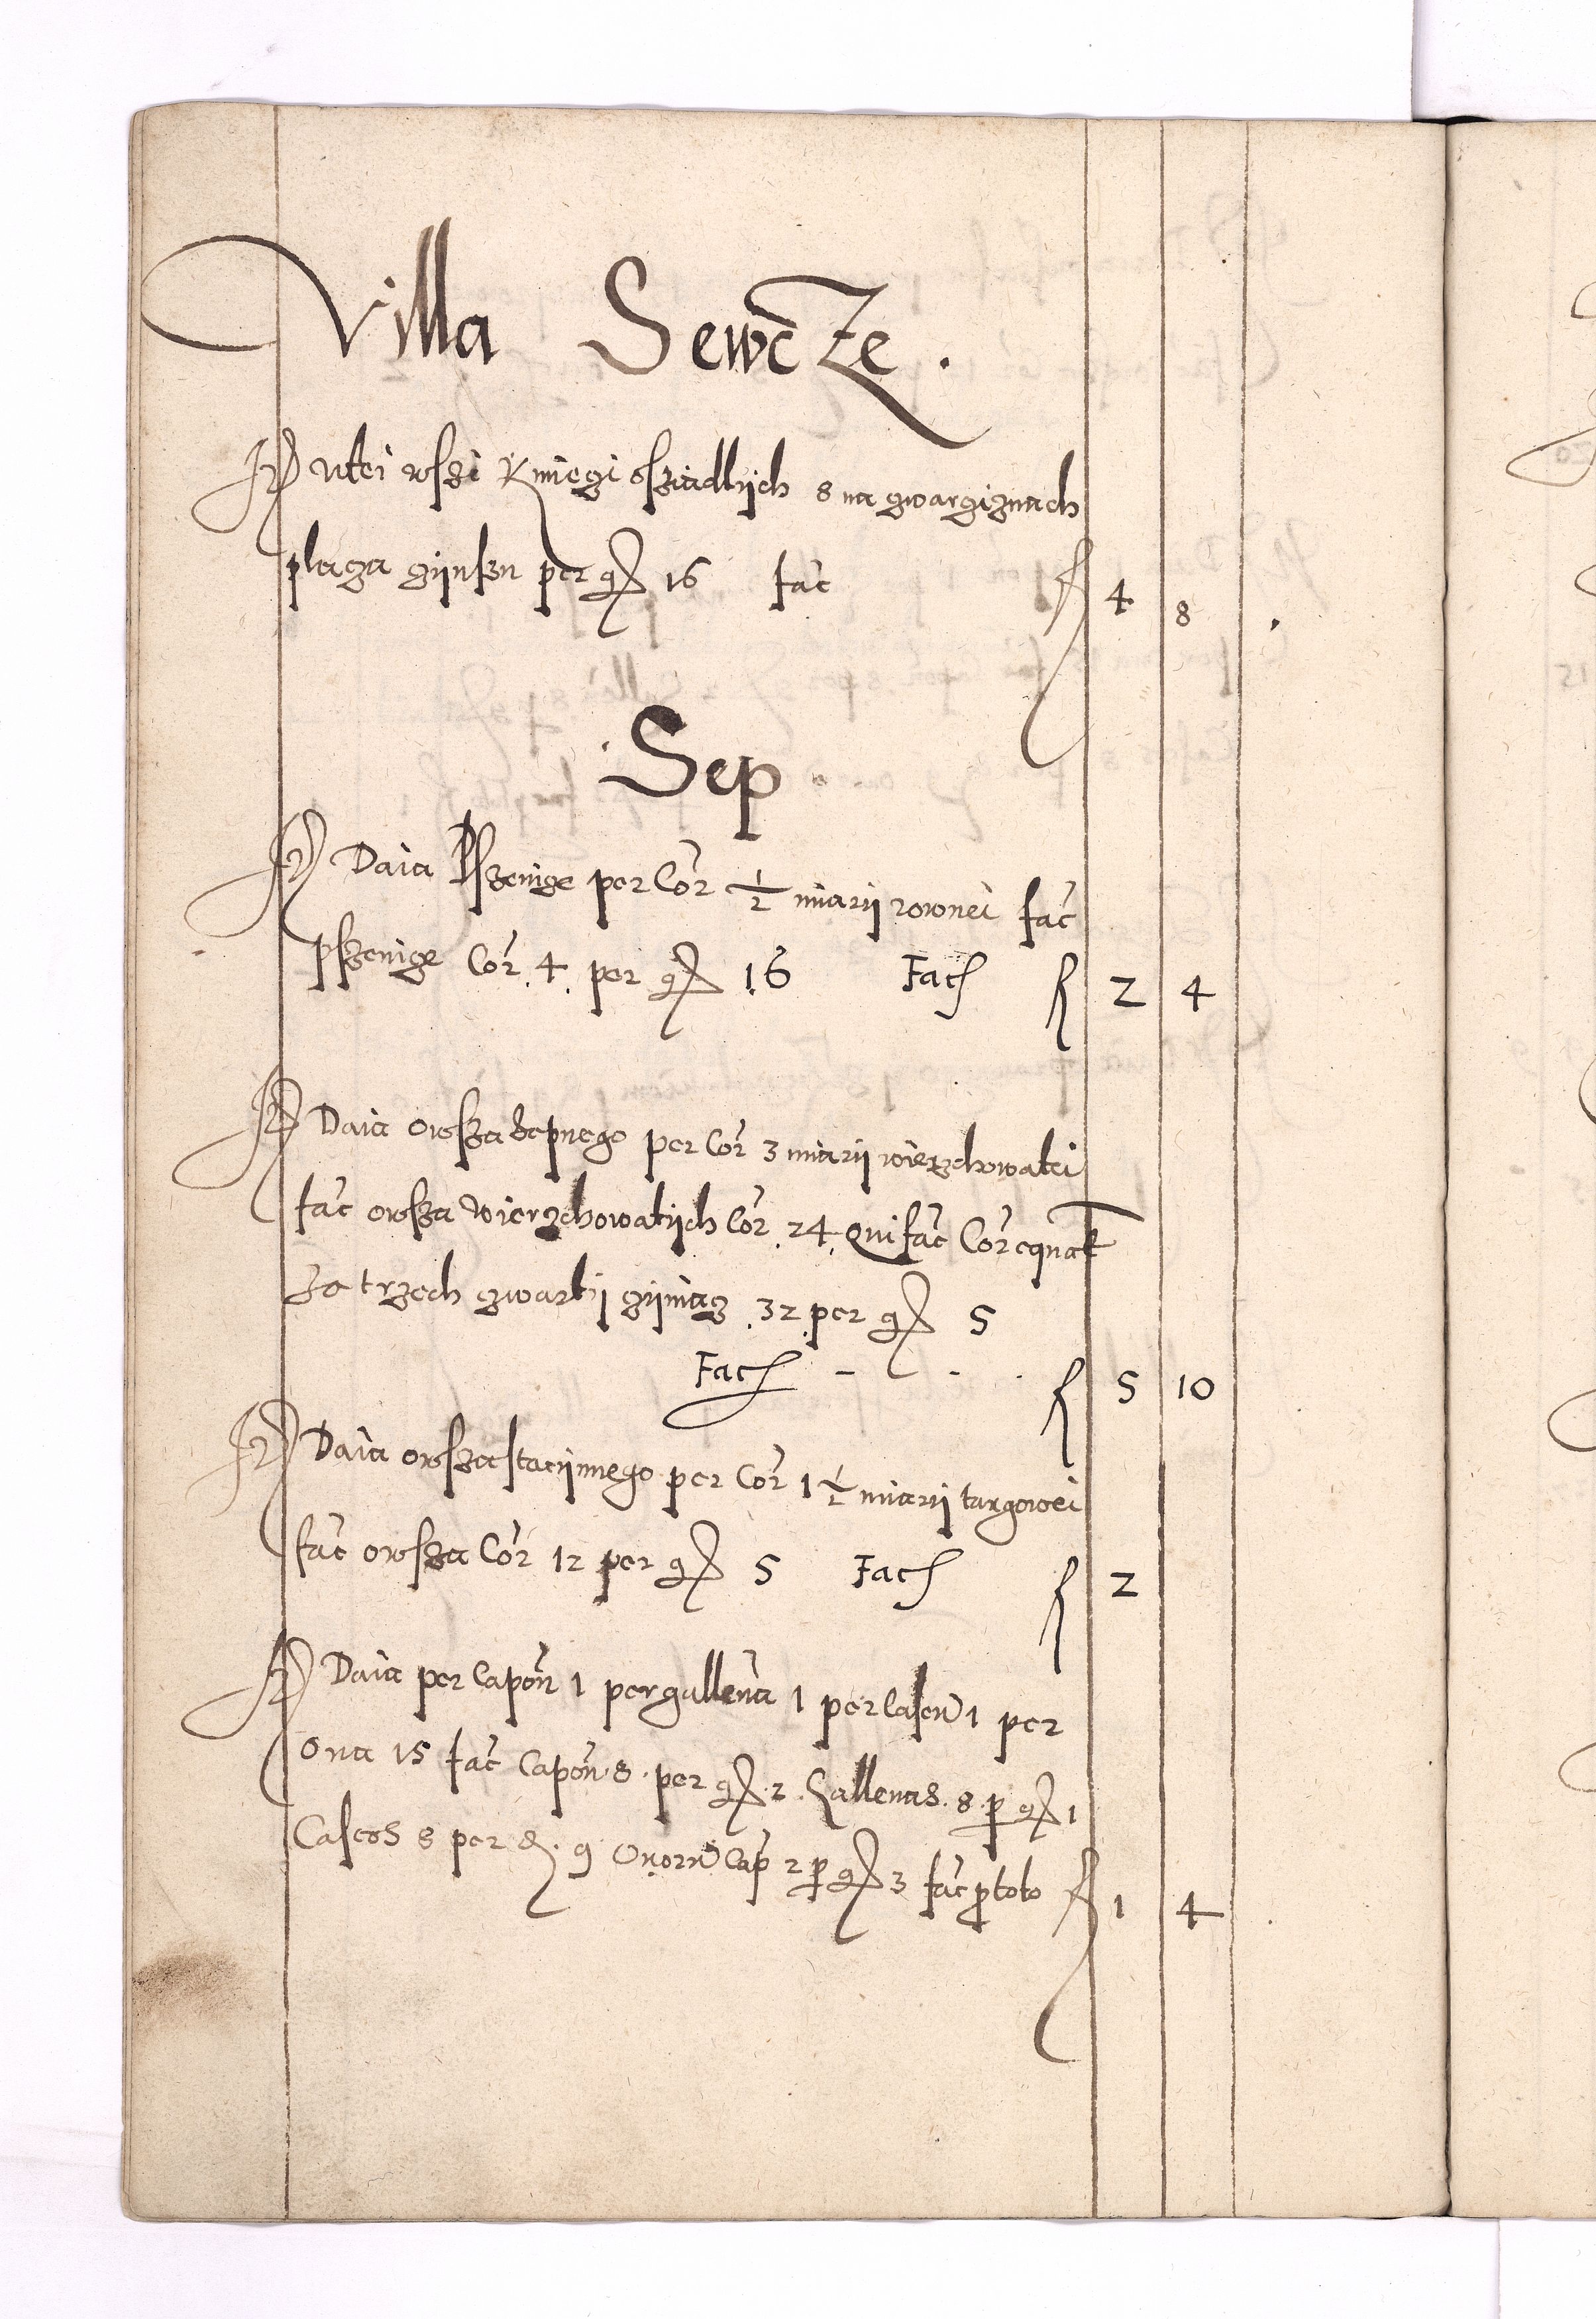 Villa SewcZe.
It Vtei wsſzi Kmieczi osziadlijch 8 na czwarcziznach
placza czijnszu per gr 16 fac̃ fl 4 8
Sep
It Daia Pszenicze per Cor̃ 1/2 miarij rownei fac̃
pszenicze Cor̃. 4. per gr 16 Fac fl 2 4
It Daia owsza sepnego per Cor̃ 3 miarij wierzchowatei
fac̃ owsza wierzchowatijch Cor̃. 24. Qui fac̃ Cor̃ equat
ze trzech czwartij czijniącz. 32. per gr 5
Fac - - . fl 5 10
It Daia owsza stacijinego per Cor̃ 1 1/2 miarij targowei
fac̃ owsza Cor̃ 12 per gr 5 Fac fl 2
It Daia per Capon̄ 1 per gallena 1 per Caseū 1 per
Oua 15 fac̃ Capon̄. 8. per gr. 2. Gallenas. 8. p gr 1
Caseos 8 per d. 9 Ouorū Cap 2 p gr 3 fac̃ p toto fl 1 4